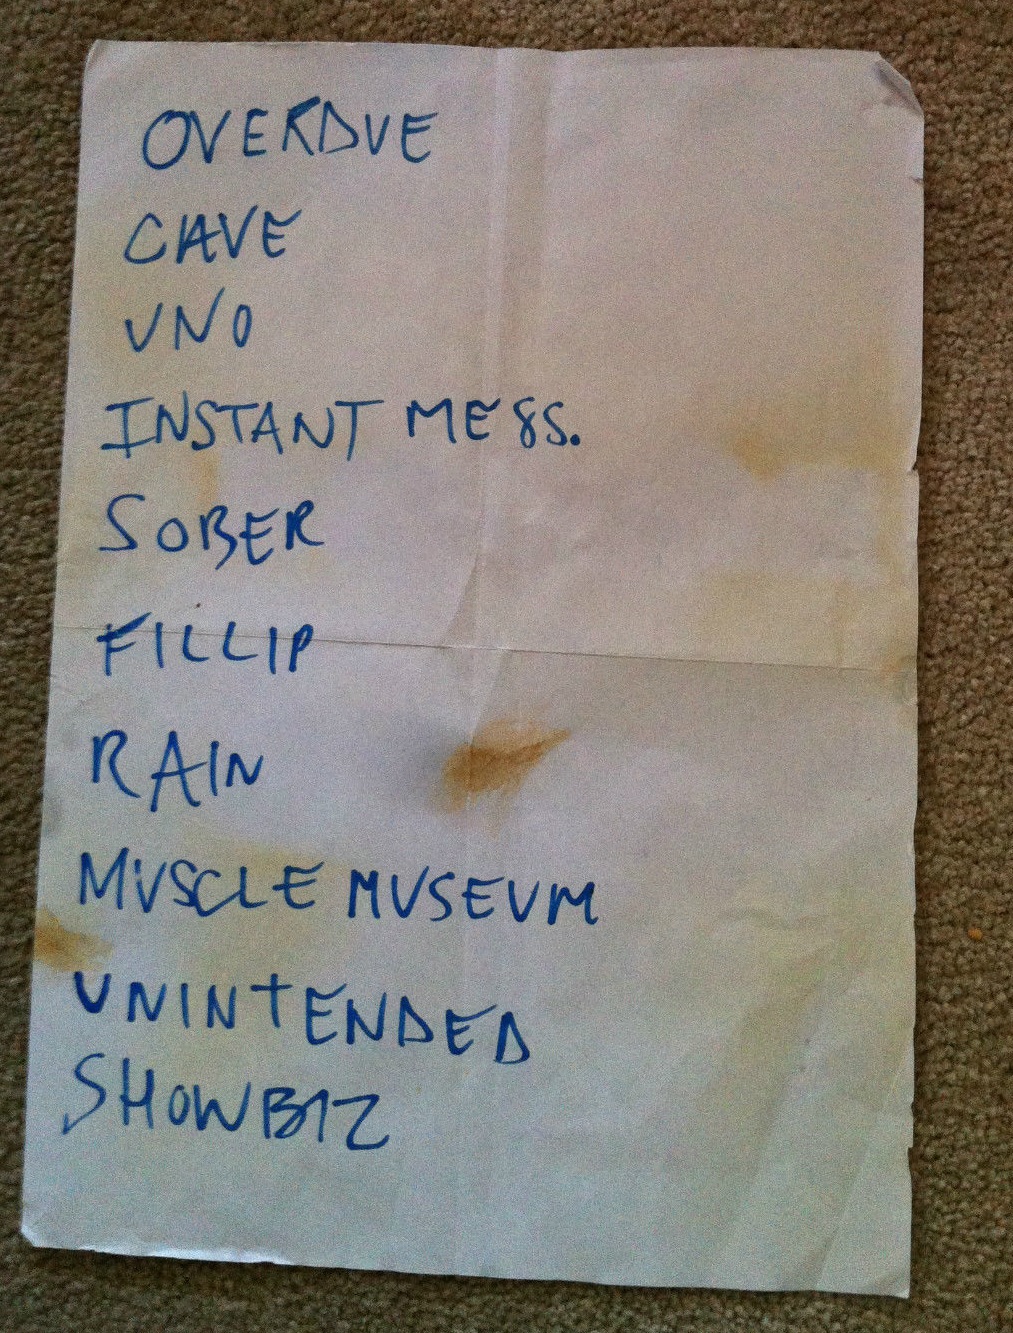 OVERDUE
CAVE
UNO
INSTANT MESS.
SOBER
FILLIP
RAIN
MUSCLE MUSEUM
UNINTENDED
SHOWBIZ